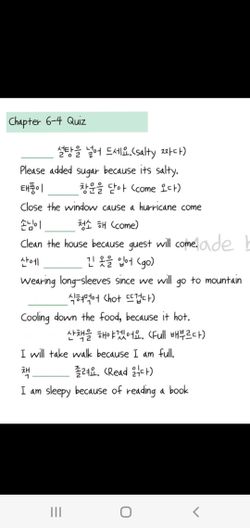 Chapter 6-4 Quiz
설탕을 넣어 드세요.(salty 짜다)
Please added sugar because its salty.
태풍이 창문을 닫아 (come 오다)
Close the window cause a hurricane come
손님이 청소 해 (come)
Clean the house because guest will come.
산에 긴 옷을 입어 (go)
Wearing long-sleeves since we will go to mountain
식혀먹어 (hot 뜨겁다)
Cooling down the food, because it hot.
산책을 해야겠어요. (Full 배부르다)
I will take walk because I am full.
책 졸려요. (Read 읽다)
I am sleepy because of reading a book